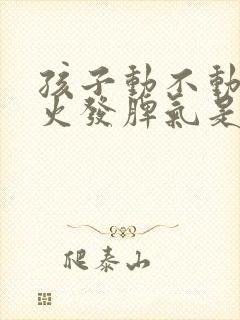 孩子動不動
火發脾氣是
爬泰山